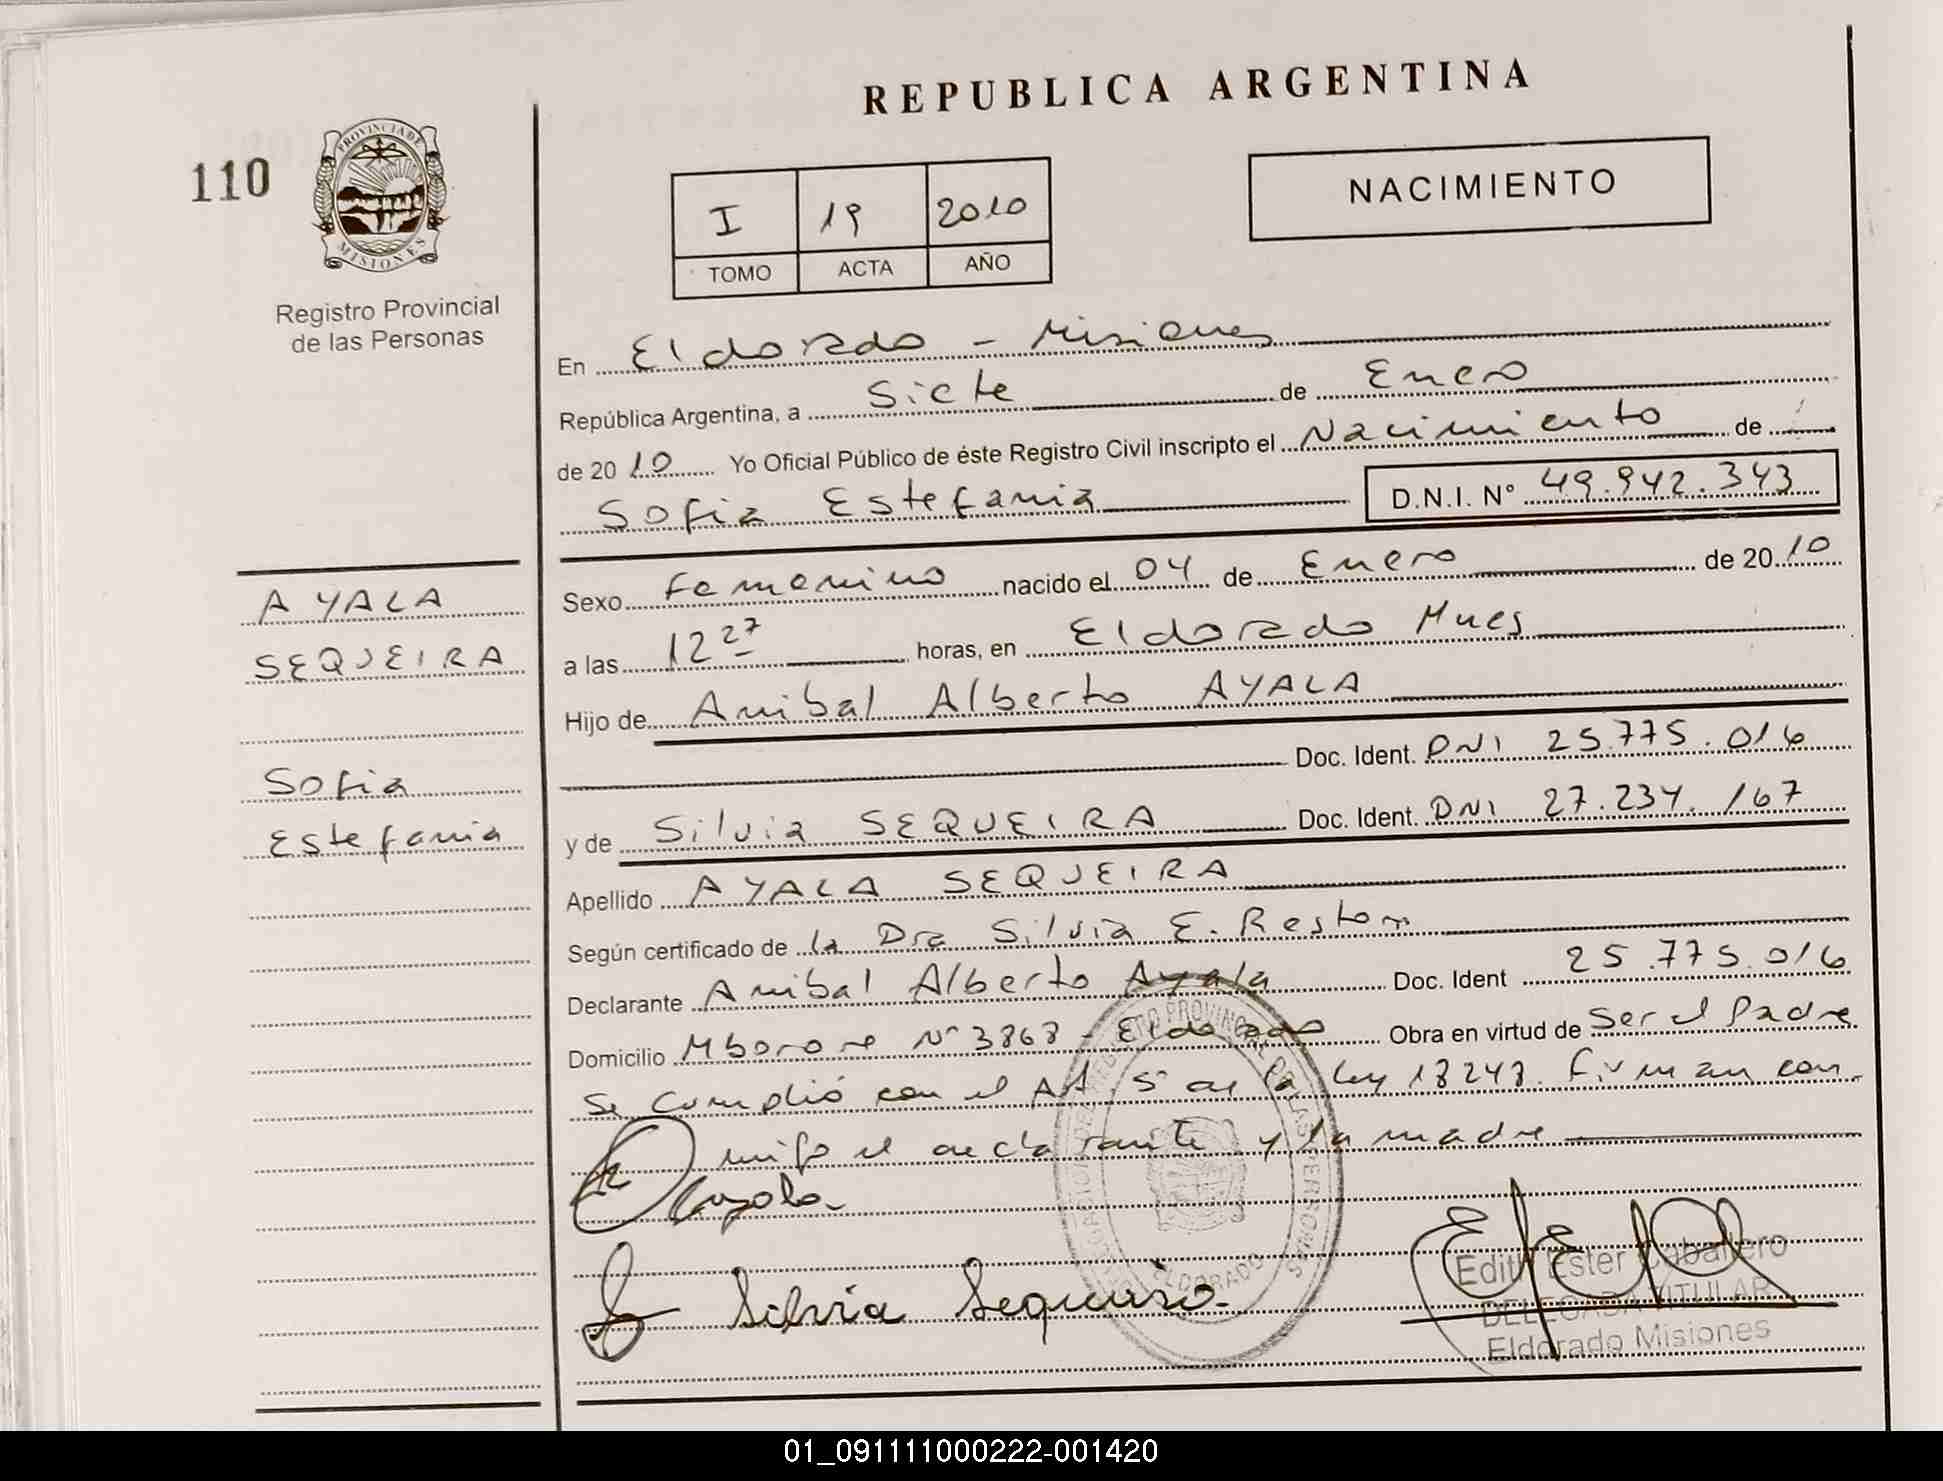 REPUBLICA ARGENTINA
110
PROVINCIA DE
MISIONES
Registro Provincial
de las Personas
NACIMIENTO
I 19 2010
TOMO ACTA AÑO
En Eldorado - Misiones
República Argentina, a Siete de Enero
de 2010 Yo Oficial Público de éste Registro Civil inscripto el Nacimiento de
Sofia Estefania D.N.I. Nº 49.942.343
AYALA
SEQUEIRA
Sofia
Estefania
Sexo Femenino nacido el 04 de Enero de 2010
a las 12 27 horas, en Eldorado Mnes
Hijo de Anibal Alberto AYALA
Doc. Ident. DNI 25.775.016
y de Silvia SEQUEIRA Doc. Ident. DNI 27.234.167
Apellido AYALA SEQUEIRA
Según certificado de la Dra Silvia E. Reston
Declarante Anibal Alberto Ayala Doc. Ident 25.775.016
Domicilio Mborore Nº 3868 - Eldorado Obra en virtud de Ser el Padre
Se Cumplió con el Art 5º de la Ley 18248. Firman con
migo el declarante y la madre
Ayala
Silvia Sequeira
DELEGACION DEL REGISTRO PROVINCIAL DE LAS PERSONAS
ELDORADO
Edith Ester Caballero
DELEGADA TITULAR
Eldorado Misiones
01_091111000222-001420